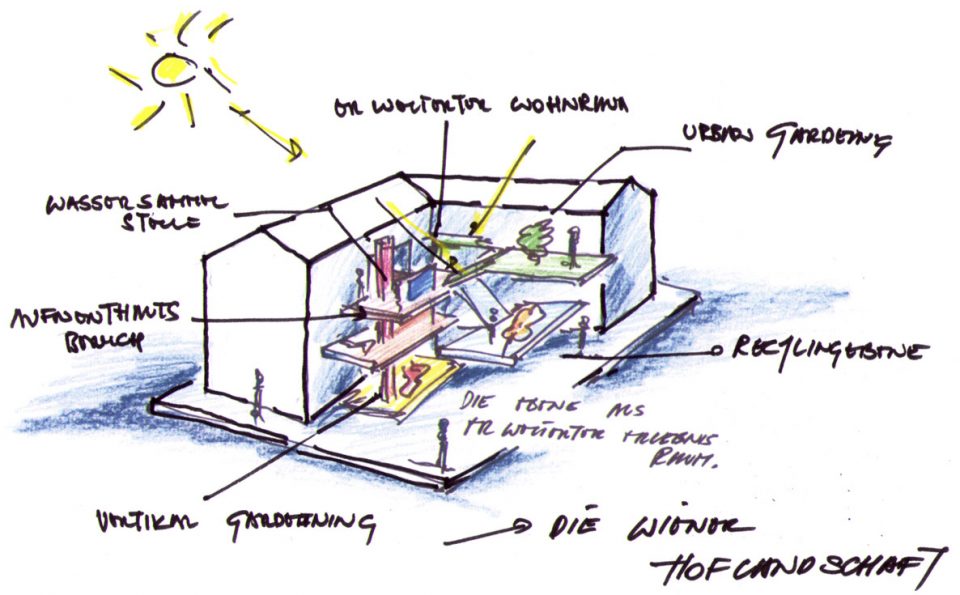 ERWEITERTER WOHNRAUM
URBAN GARDENING
WASSERSAMMEL
STELLE
AUFENTHALTS
BEREICH
RECYLINGEBENE
DIE EBENE ALS
ERWEITERTER ERLEBNIS
RAUM.
VERTIKAL GARDEENING
DIE WIENER
HOFLANDSCHAFT